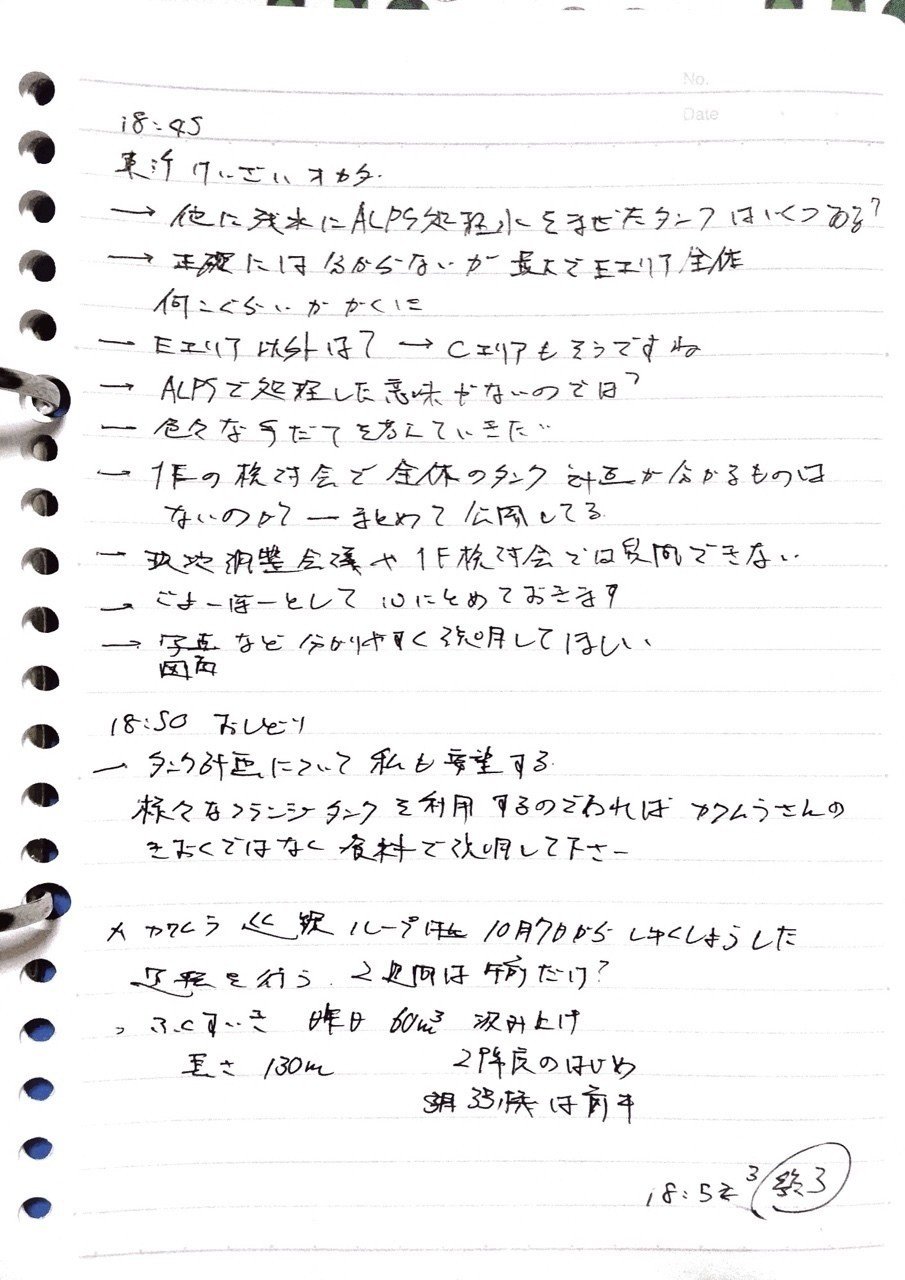 No.
Date
18:45
東洋けいざい オカダ
→ 他に残水にALPS処理水をまぜたタンクはいくつある?
→ 正確には分からないが最大でEエリア全体
何こぐらいかかくに
― Eエリア以外は? → Cエリアもそうですね
→ ALPSで処理した意味がないのでは?
― 色々な手だてを考えていきたい
→ 1Fの検討会で全体のタンク計画が分かるものは
ないのか? ― まとめて公開してる
― 現地調整会議や1F検討会では質問できない
→ ごよーぼーとして 心にとめておきます
→ 写真など分かりやすく説明してほしい
図面
18:50 おしどり
― タンク計画について私も要望する
様々なフランジタンクを利用するのであれば カワムラさんの
きおくではなく資料で説明して下さー
カワムラ ループは 10月7日から しゅくしょうした
運転を行う. 2週間は午前だけ?
ふくすいき 昨日 60m³ 汲み上げ
長さ 130m 29年度のはじめ
3号機は前半
18:53 終了